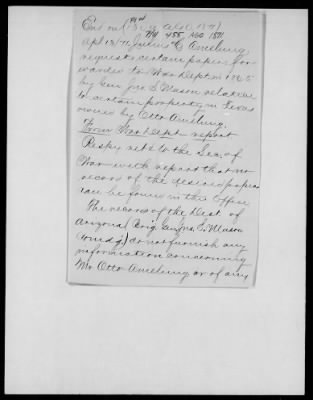 Apl 13/71. Julius C Amelung
requests certain papers for-
warded to War Dept in 1865
by Gen Jno. S. Mason relative
to certain property in Texas
owned by Otto Amelung.
From War Dept. report
Respy retd to the Sec. of
War with report that no
record of the desired papers
can be found in this Office
The records of the Dist of
Arizona (Brig. Gen Jno. S. Mason
Comd'g) do not furnish any
information concerning
Mr. Otto Amelung or of any